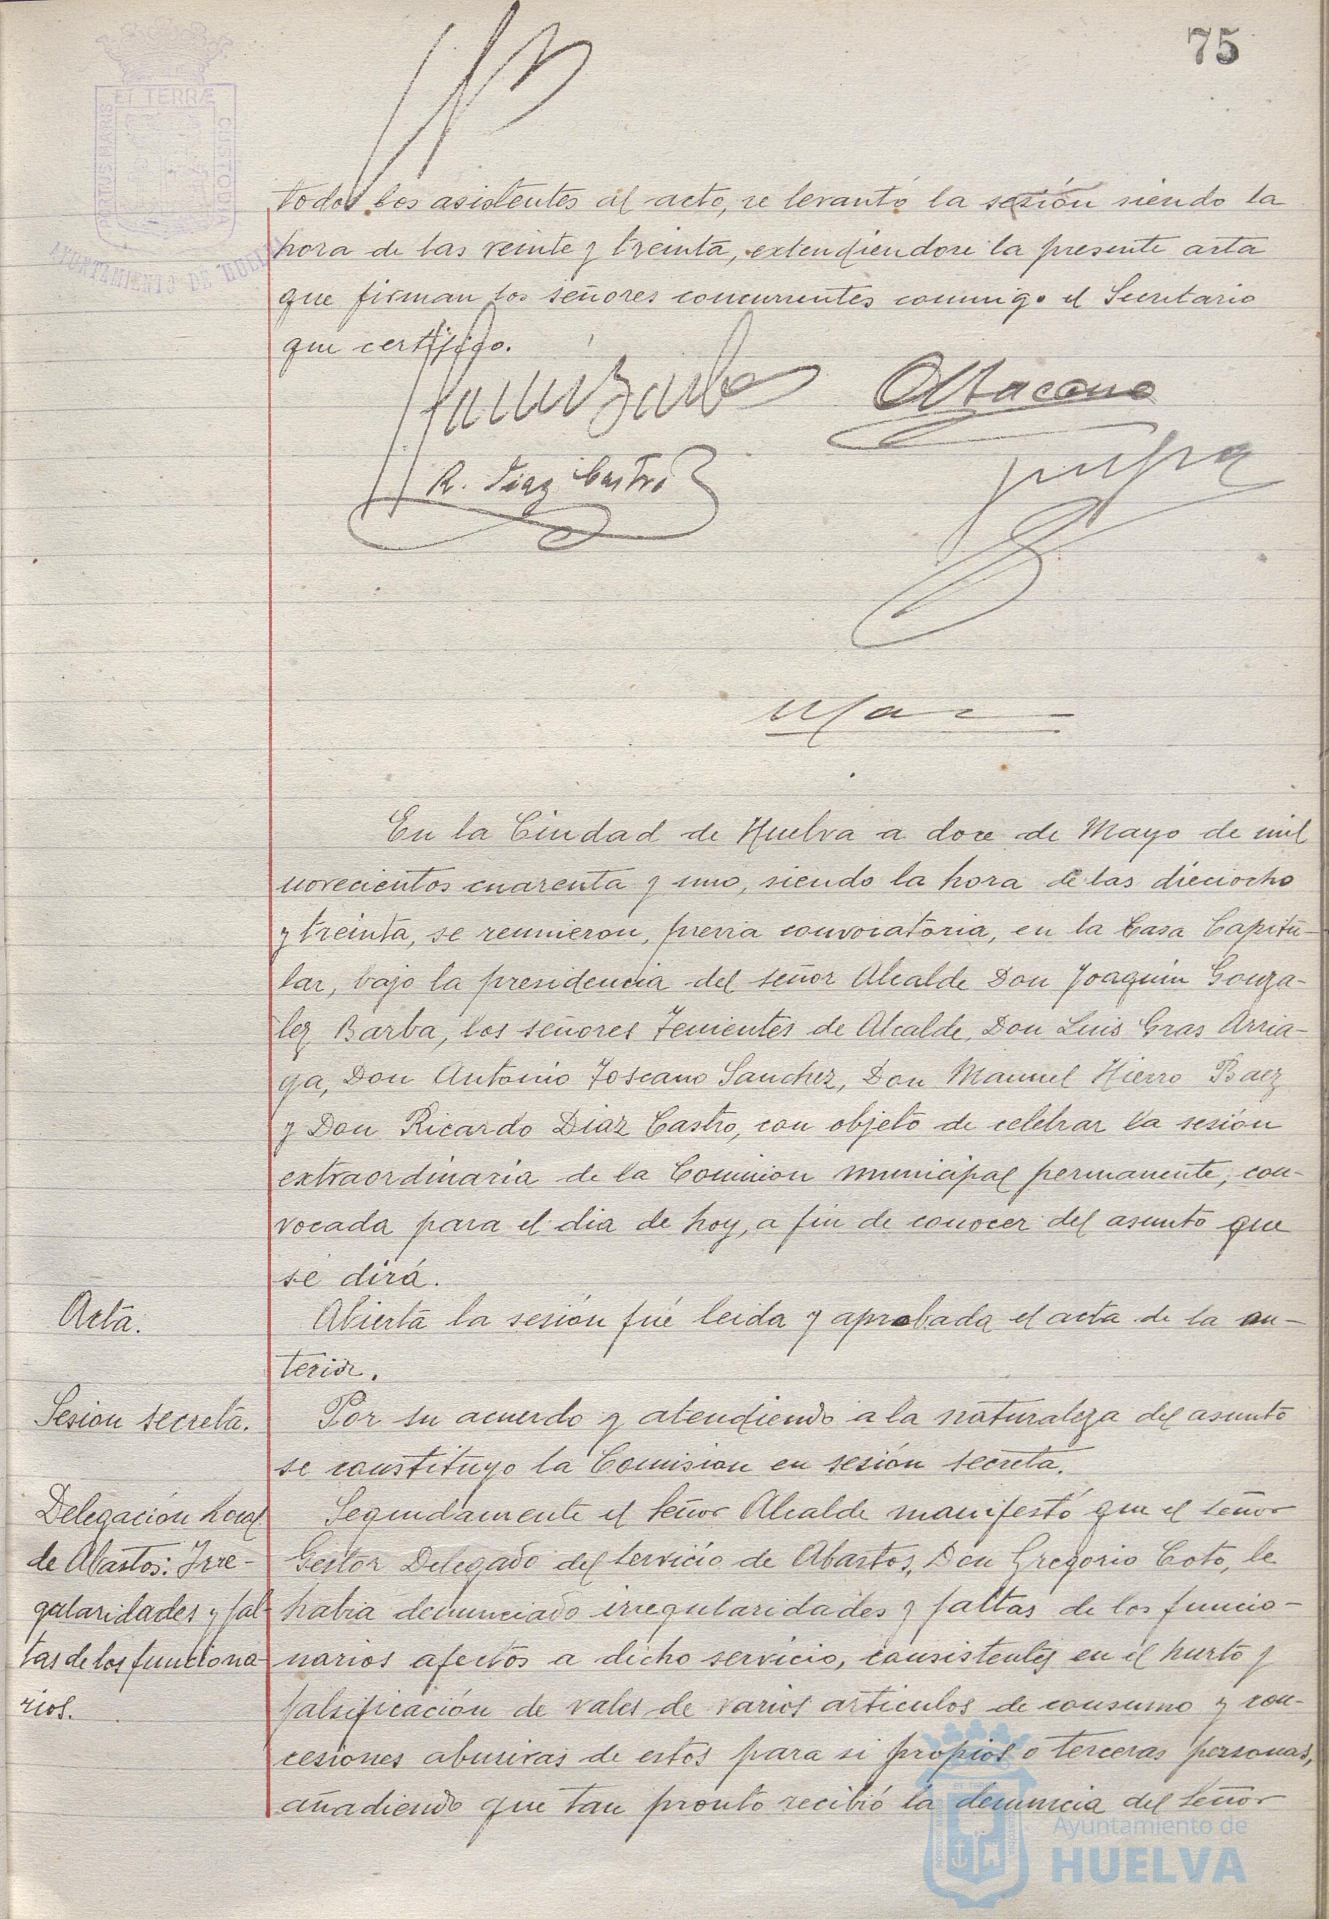 75
ET TERRÆ
PORTUS MARIS
CUSTODIA
AYUNTAMIENTO DE HUELVA
todos los asistentes al acto, se levantó la sesión siendo la
hora de las veinte y treinta, extendiendose la presente acta
que firman los señores concurrentes conmigo el Secretario
que certifico.
R. Diaz Castro
En la Ciudad de Huelva a doce de Mayo de mil
novecientos cuarenta y uno, siendo la hora de las dieciocho
y treinta, se reunieron, previa convocatoria, en la Casa Capitu-
lar, bajo la presidencia del señor Alcalde Don Joaquin Gonza-
lez Barba, los señores Tenientes de Alcalde, Don Luis Gras Arria-
ga, Don Antonio Toscano Sanchez, Don Manuel Hierro Baez
y Don Ricardo Diaz Castro, con objeto de celebrar la sesión
extraordinaria de la Comision municipal permanente, con-
vocada para el dia de hoy, a fin de conocer del asunto que
se dirá.
Acta.
Abierta la sesión fué leida y aprobada el acta de la an-
terior.
Sesion secreta.
Por su acuerdo y atendiendo a la naturaleza del asunto
se constituyo la Comision en sesión secreta.
Delegación Local
de Abastos: Irre-
gularidades y fal-
tas de los funciona-
rios.
Seguidamente el Señor Alcalde manifestó que el señor
Gestor Delegado del servicio de Abastos, Don Gregorio Coto, le
habia denunciado irregularidades y faltas de los funcio-
narios afectos a dicho servicio, consistentes en el hurto y
falsificación de vales de varios articulos de consumo y con-
cesiones abusivas de estos para si propios o terceras personas,
añadiendo que tan pronto recibió la denuncia del Señor
Ayuntamiento de
HUELVA